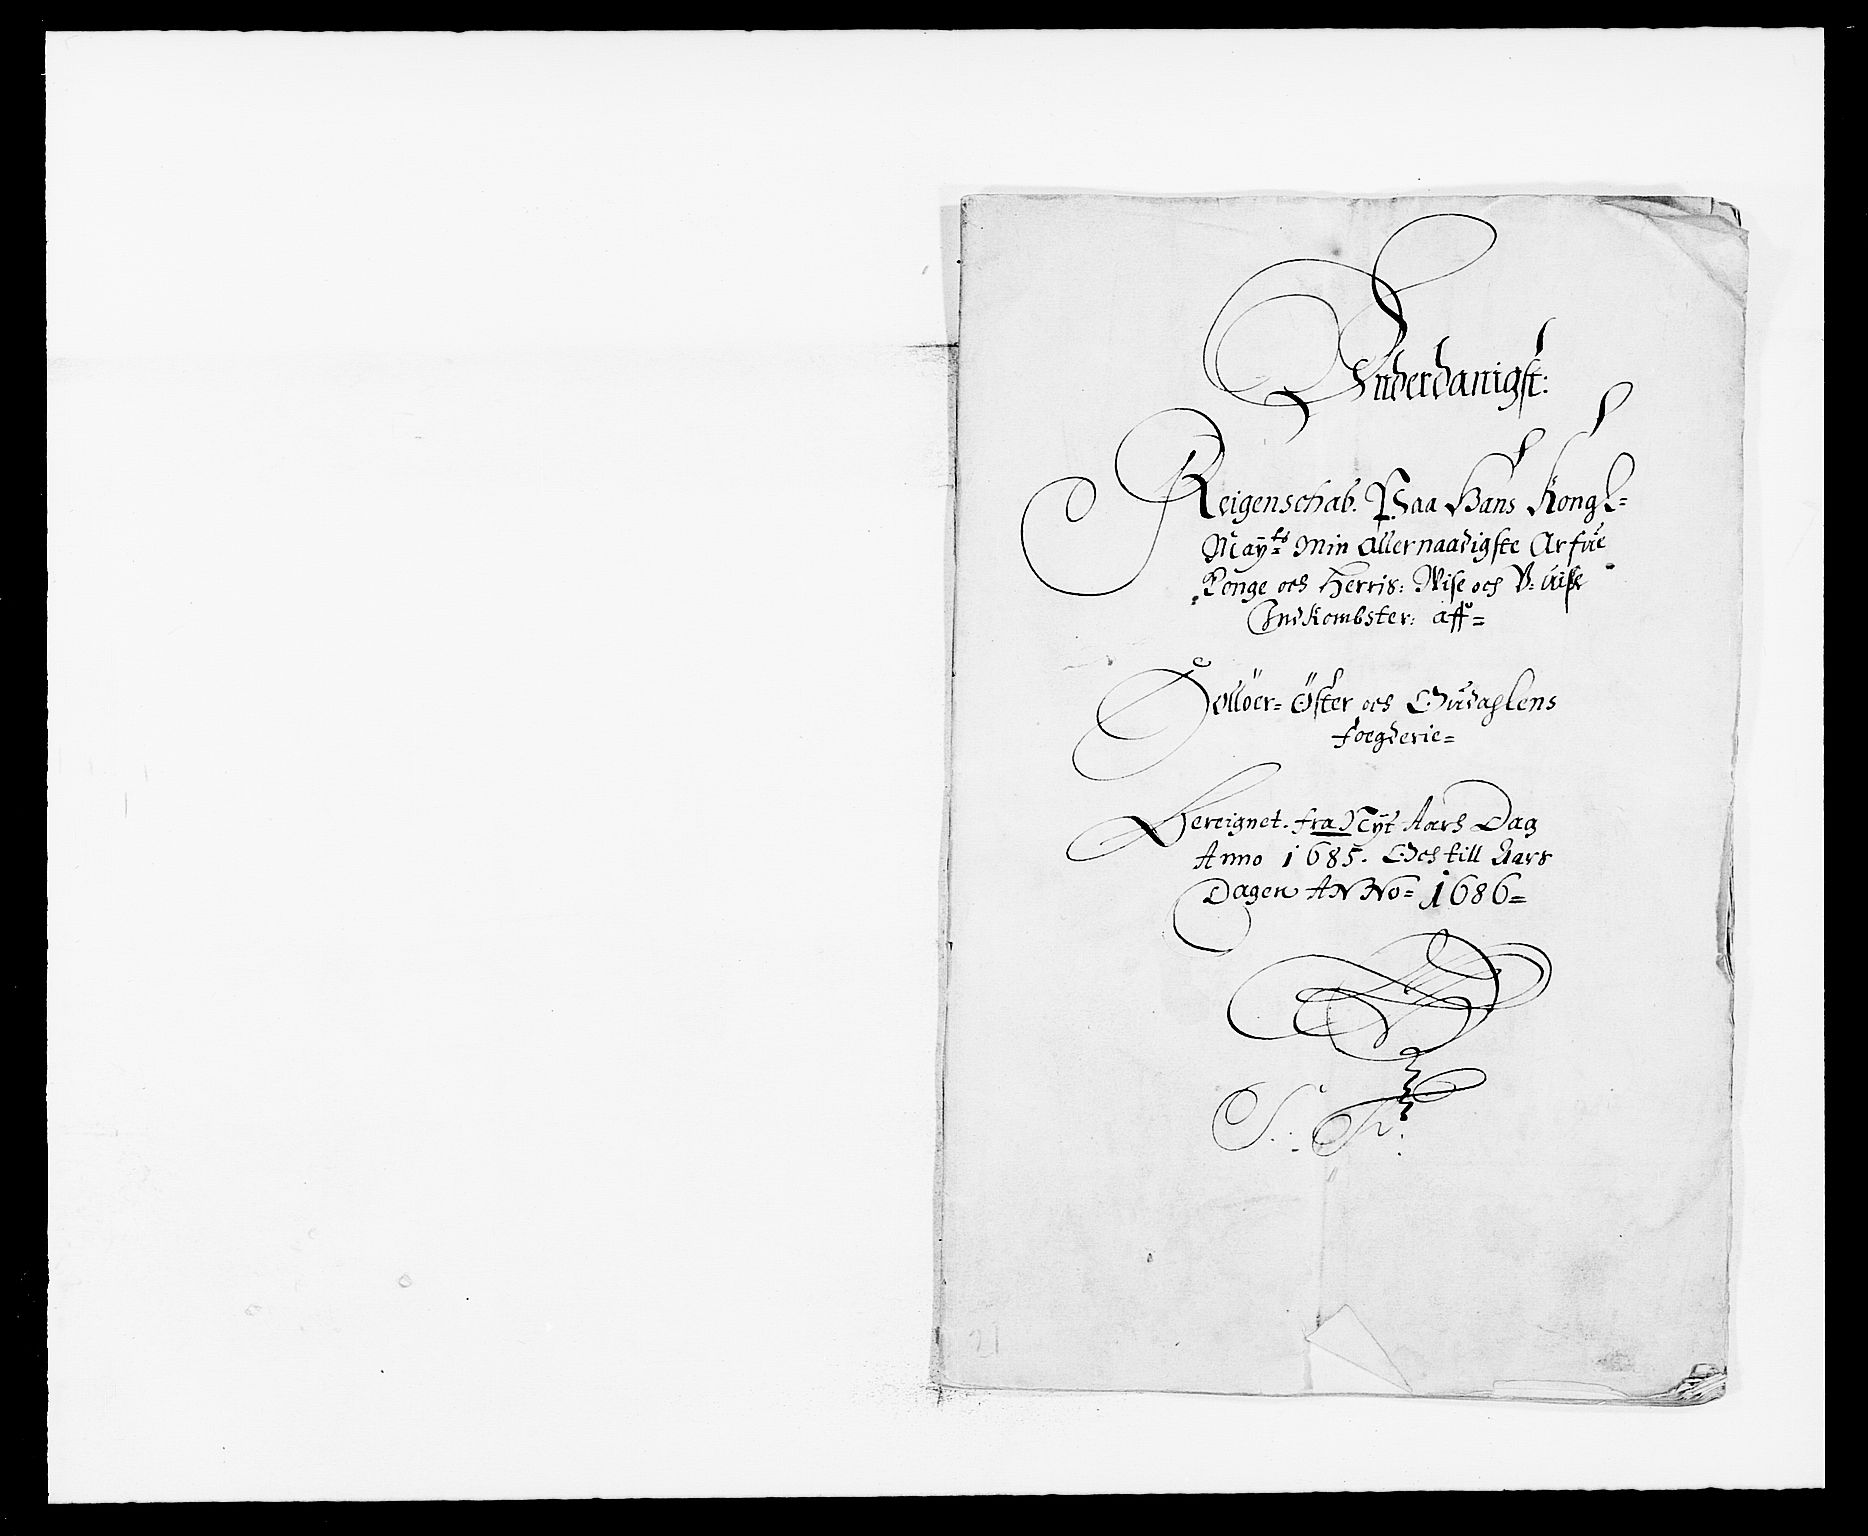 Underdanigst:
Reigenschab. Paa Hans Kongl=
Maÿ:ts Min Allernaadigste Arfue
Konge och Herris: Wise och V: uise
Indkombster: aff=
Solløer= Öster och Oudahlens
foegderie=
Bereignet. fra Nÿt Aars Dag
Anno 1685. Och till Aars
Dagen ANNo= 1686=
21